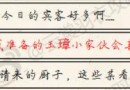 今日的宾客好多啊...
准备的玉璋小家伙会喜
请来的厨子，这些某看